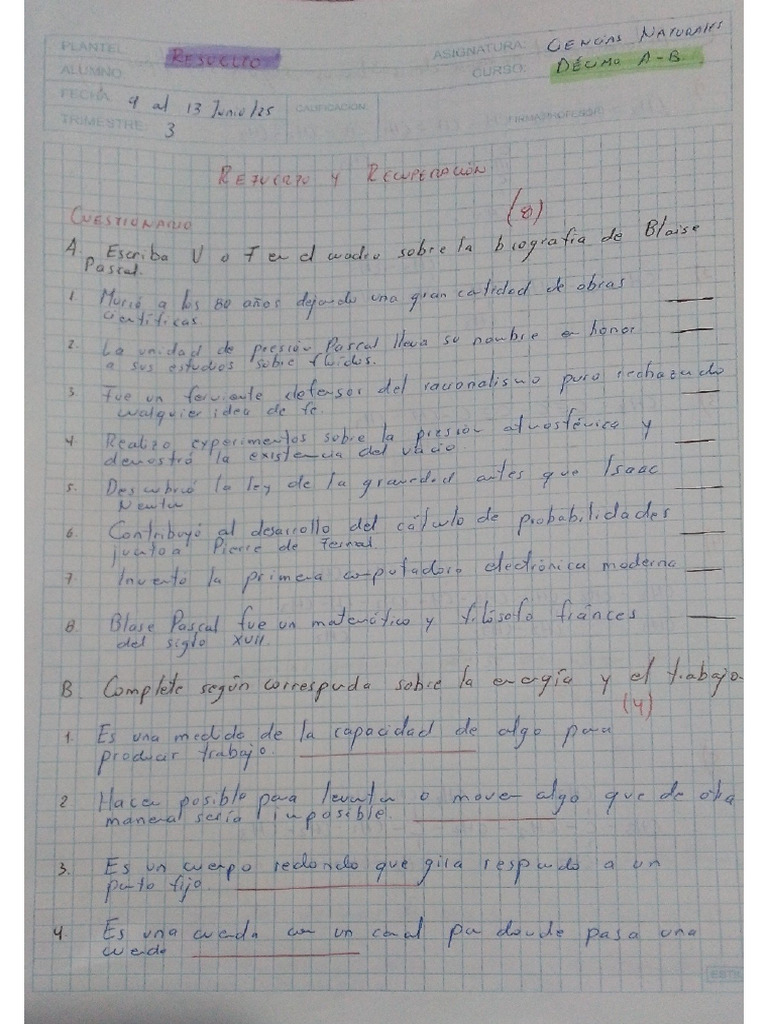 PLANTEL: RESUELTO ASIGNATURA: CIENCIAS NATURALES
ALUMNO CURSO: DÉCIMO A-B
FECHA: 9 al 13 Junio/25 CALIFICACIÓN FIRMA PROFESOR
TRIMESTRE: 3
REFUERZO Y RECUPERACIÓN
CUESTIONARIO (8)
A. Escriba V o F en el cuadro sobre la biografía de Blaise
Pascal.
1. Murió a los 80 años dejando una gran cantidad de obras
científicas
2. La unidad de presión Pascal lleva su nombre en honor
a sus estudios sobre fluidos.
3. Fue un ferviente defensor del racionalismo puro rechazando
cualquier idea de fe.
4 Realizo experimentos sobre la presión atmosférica y
demostró la existencia del vacio
5. Descubrió la ley de la gravedad antes que Isaac
Newton
6. Contribuyó al desarrollo del cálculo de probabilidades
junto a Pierre de Fermat.
7 Invento la primera computadora electrónica moderna
8 Blase Pascal fue un matemático y filósofo fránces
del siglo XVII.
B. Complete según corresponda sobre la energía y el trabajo
(4)
1. Es una medida de la capacidad de algo para
producir trabajo.
2 Hacer posible para levantar o mover algo que de otra
manera sería imposible.
3. Es un cuerpo redondo que gira respecto a un
punto fijo.
4. Es una cuerda con un canal por donde pasa una
cuerda